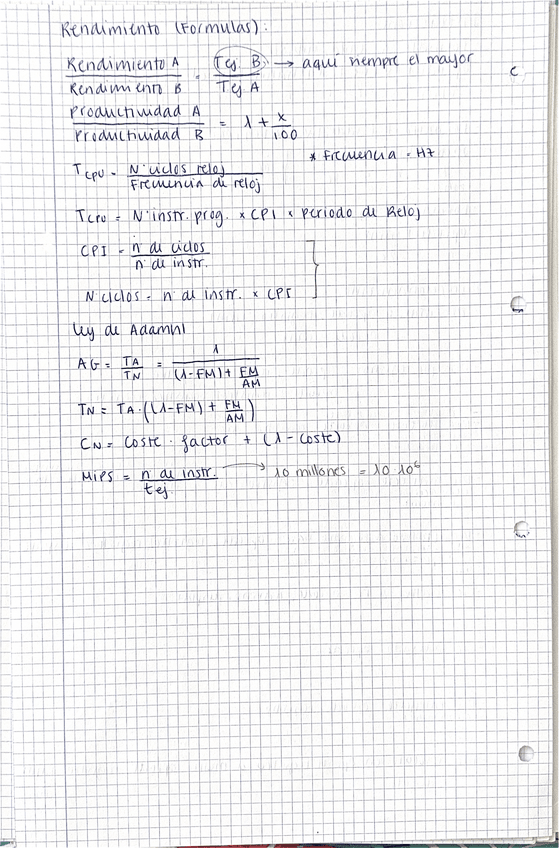 Rendimiento (Formulas):
Rendimiento A / Rendimiento B = Tej B / Tej A → aquí siempre el mayor
Productividad A / Productividad B = 1 + x/100
* Frecuencia = Hz
Tcpu = Nº ciclos reloj / Frecuencia de reloj
Tcpu = Nº instr. prog. × CPI × Periodo de Reloj
CPI = nº de ciclos / nº de instr.
Nciclos = nº de instr. × CPI
Ley de Adamhl
AG = TA/TN = 1 / ((1-FM) + FM/AM)
TN = TA · ((1-FM) + FM/AM)
CN = Coste · factor + (1 - coste)
MIPS = nº de instr. / tej → 10 millones = 10·10⁶